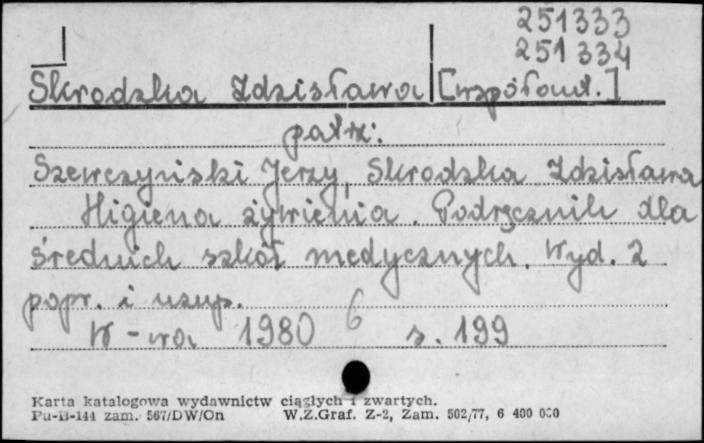 251333
251334
Skrodzka Zdzisława [współaut.]
patrz:
Szewczyński Jerzy, Skrodzka Zdzisława
Higiena żywienia. Podręcznik dla
średnich szkół medycznych. Wyd. 2
popr. i uzup.
W-wa 1980 6 s. 199
Karta katalogowa wydawnictw ciągłych i zwartych.
Pu-B-144 zam. 567/DW/On W.Z.Graf. Z-2, Zam. 502/77, 6 400 000